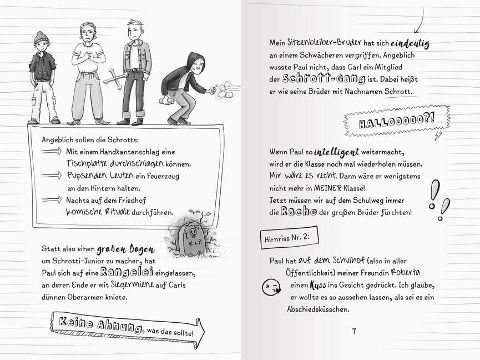 Angeblich sollen die Schrotts:
Mit einem Handkantenschlag eine
Tischplatte durchschlagen können.
Pupsenden Leuten ein Feuerzeug
an den Hintern halten.
Nachts auf dem Friedhof
komische Rituale durchführen.
R.I.P
Statt also einen großen Bogen
um Schrotti-Junior zu machen, hat
Paul sich auf eine Rangelei eingelassen,
an deren Ende er mit Siegermiene auf Carls
dünnen Oberarmen kniete.
Keine Ahnung, was das sollte!
Mein Sitzenbleiber-Bruder hat sich eindeutig
an einem Schwächeren vergriffen. Angeblich
wusste Paul nicht, dass Carl ein Mitglied
der Schrott-Gang ist. Dabei heißt
er wie seine Brüder mit Nachnamen Schrott.
HALLOOOOO?!
Wenn Paul so intelligent weitermacht,
wird er die Klasse noch mal wiederholen müssen.
Mir wäre es recht. Dann wäre er wenigstens
nicht mehr in MEINER Klasse!
Jetzt müssen wir auf dem Schulweg immer
die Rache der großen Brüder fürchten!
!!
Hirnriss Nr. 2:
Paul hat auf dem Schulhof (also in aller
Öffentlichkeit) meiner Freundin Roberta
einen Kuss ins Gesicht gedrückt. Ich glaube,
er wollte es so aussehen lassen, als sei es ein
Abschiedsküsschen.
7